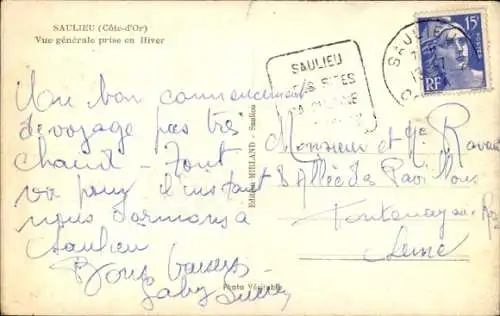 SAULIEU (Côte-d'Or)
Vue générale prise en Hiver
Un bon commencement
de voyage pas très
chaud - Tout
va pour l'instant
nous dormons à
Saulieu
Bons baisers
Gaby
Edition MIELAND - Saulieu
Photo Véritable
SAULIEU
SES SITES
SAULIEU
15F
POSTES
RF
Monsieur et Me
8 Allée des Pavillons
Fontenay aux
Seine